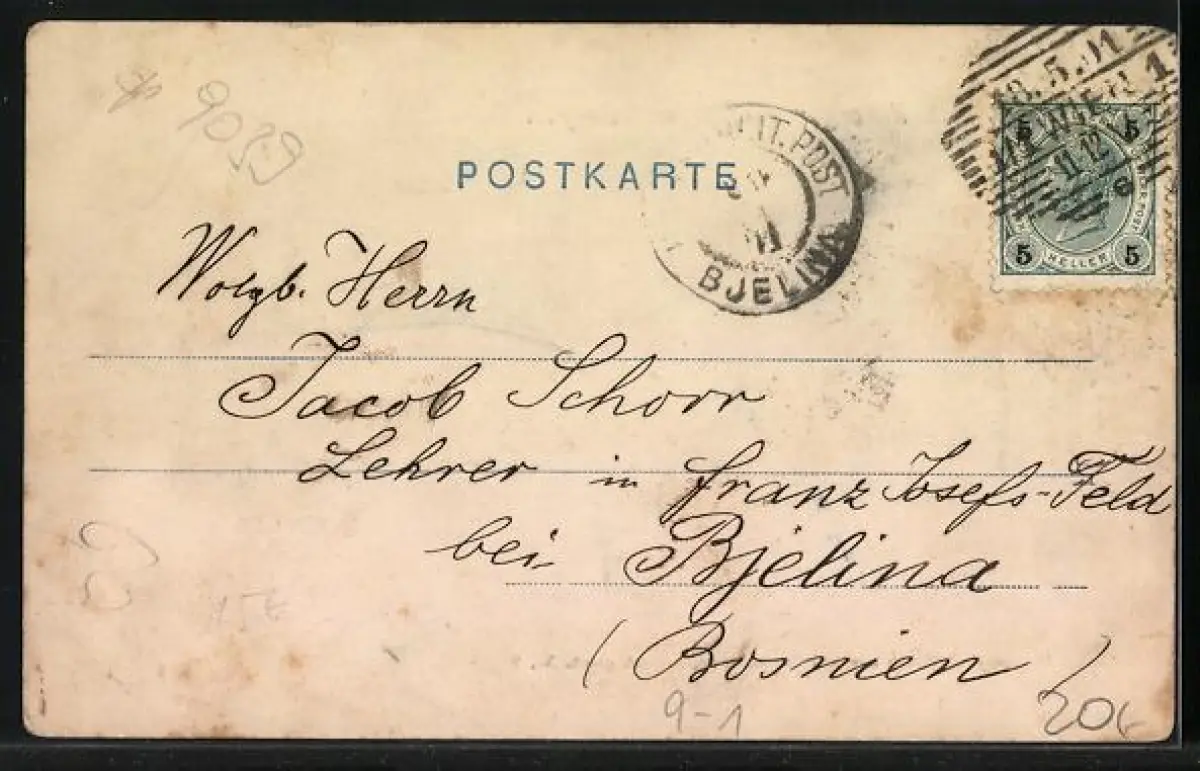 9059
8.5.01
WIEN 1
11 12
e
5 5
5 HELLER 5
POSTKARTE
MILIT. POST
01
BJELINA
Wolgb. Herrn
Jacob Schorr
Lehrer in Franz Josefs-Feld
bei Bjelina
(Bosnien)
9-1
20€